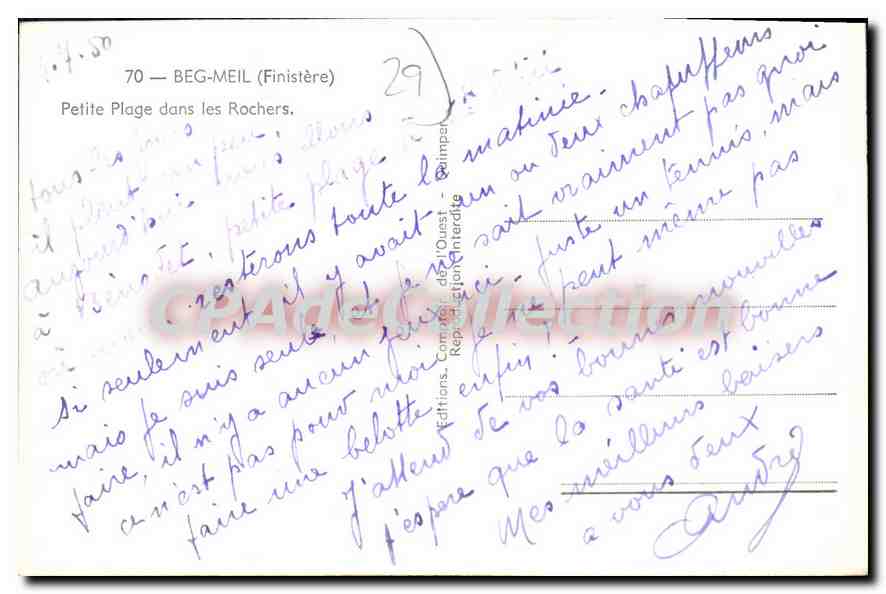 .7.50
70 — BEG-MEIL (Finistère)
Petite Plage dans les Rochers.
29
Editions. Comptoir de l'Ouest - Quimper
Reproduction Interdite
CPAdeCollection
tous les
il pleut un peu,
aujourd'hui nous allons
à Bénodet, petite plage à
où nous resterons toute la matinée.
Si seulement il y avait un ou deux chauffeurs
mais je suis seul, et je ne sait vraiment pas quoi
faire, il n'y a aucun jeux ici. Juste un tennis, mais
ce n'est pas pour moi. Je ne peut même pas
faire une belotte enfin!
J'attend de vos bonnes nouvelles
j'espere que la santé est bonne
Mes meilleurs baisers
a vous deux
André